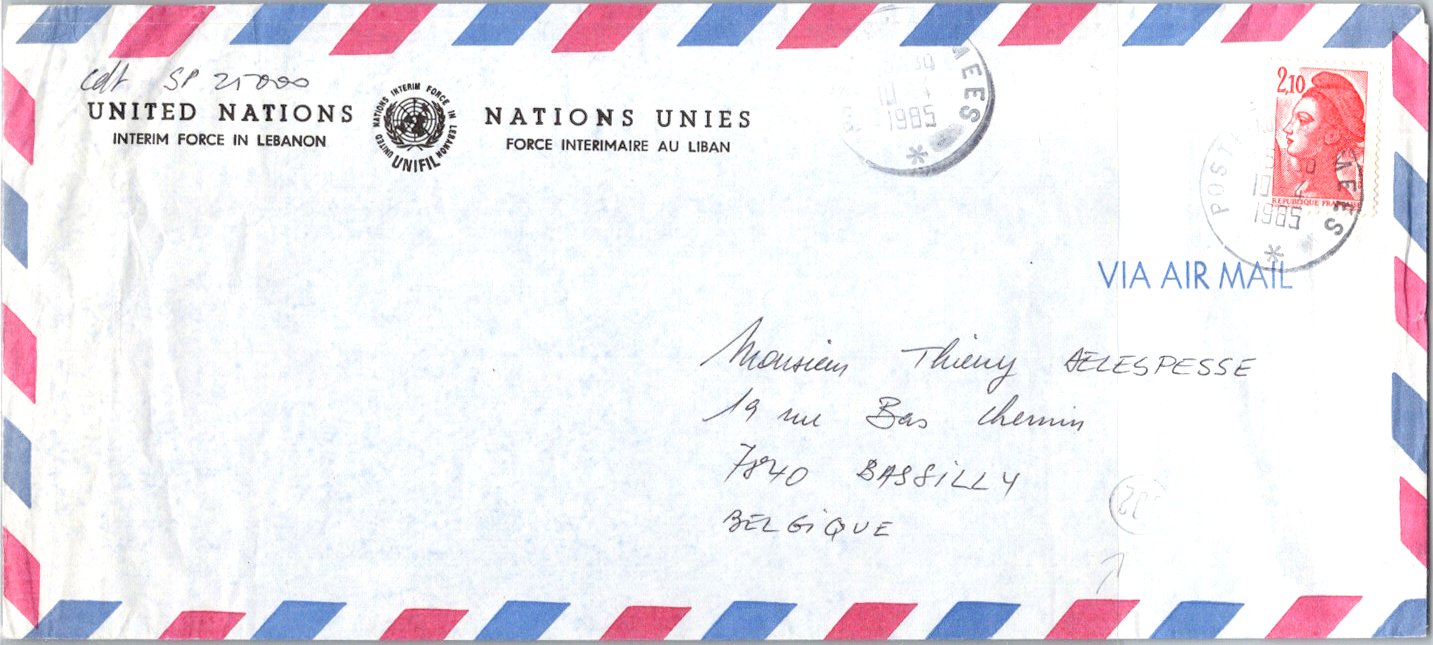 Cdt SP 25000
UNITED NATIONS
INTERIM FORCE IN LEBANON
UNITED NATIONS INTERIM FORCE IN LEBANON
UNIFIL
NATIONS UNIES
FORCE INTERIMAIRE AU LIBAN
MEES
10 4
1985
*
2,10
REPUBLIQUE FRANCAISE
POST MEES
10 4
1985
*
VIA AIR MAIL
Monsieur Thierry DELESPESSE
19 rue Bas Chemin
7840 BASSILLY
BELGIQUE